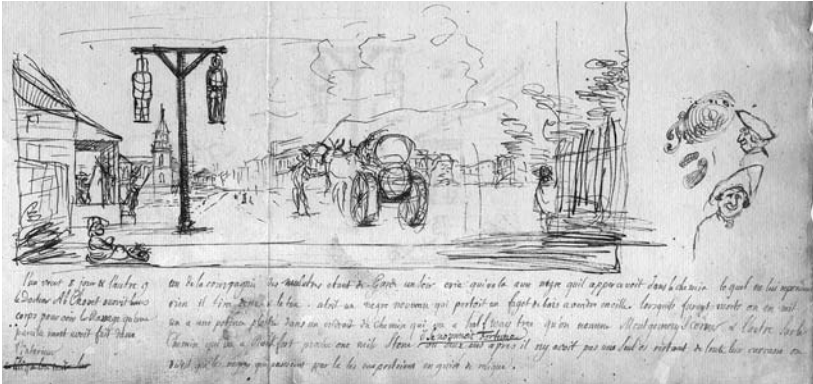 l'un vecut 5 jour & l'autre 9
le Docteur ouvrit leurs
corps pour voir le Ravage qu'une
pareille mort avoit fait dans
l'interieur
de la compagnie des mulatres etant de Garde un soir cria qui va la aux negre quil appercevoit dans le chemin lequel ne lui
rien il tira & le tua. c'etoit un negre nouveau qui portoit un fagot de bois a vendre en ville lorsqu'ils furent morts on en mit
un a une potence dans un endroit du chemin qui va a half way tree qu'on nomme Montgomery Corner & l'autre sur le
se nommoit Fortune
chemin qui va a Rock fort proche one mile Stone ou deux ans apres il n'y avoit pas un seul os restant de toute leur carcasse on
disoit que les negres qui passoient par la les emportoient en guise de relique.